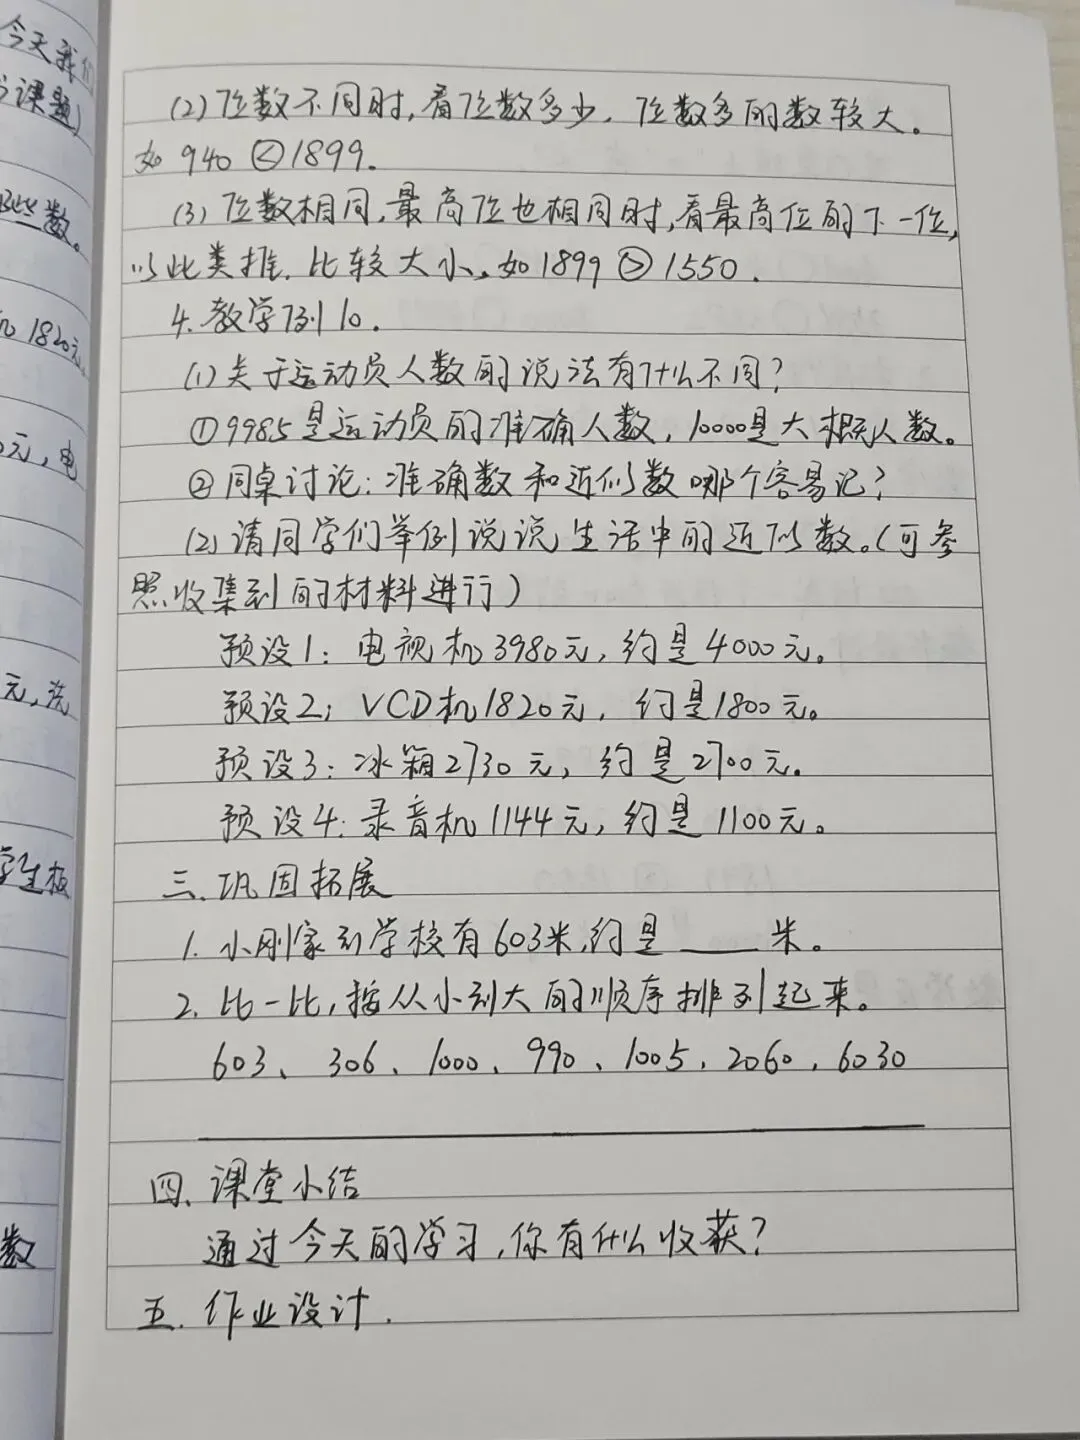 今天我们
课题)
(2)位数不同时,看位数多少,位数多的数较大。
如940<1899.
哪些数。
(3)位数相同,最高位也相同时,看最高位的下一位,
以此类推.比较大小,如1899>1550.
机1820元,
4.教学例10.
(1)关于运动员人数的说法有什么不同?
①9985是运动员的准确人数,10000是大概人数。
元,电
②同桌讨论:准确数和近似数哪个容易记?
(2)请同学们举例说说生活中的近似数。(可参
照收集到的材料进行)
预设1:电视机3980元,约是4000元。
元,洗
预设2:VCD机1820元,约是1800元。
预设3:冰箱2730元,约是2700元。
预设4:录音机1144元,约是1100元。
学生板
三.巩固拓展
1.小刚家到学校有603米,约是____米。
2.比一比,按从小到大的顺序排列起来。
603、306、1000、990、1005、2060、6030
四.课堂小结
数
通过今天的学习,你有什么收获?
五.作业设计.